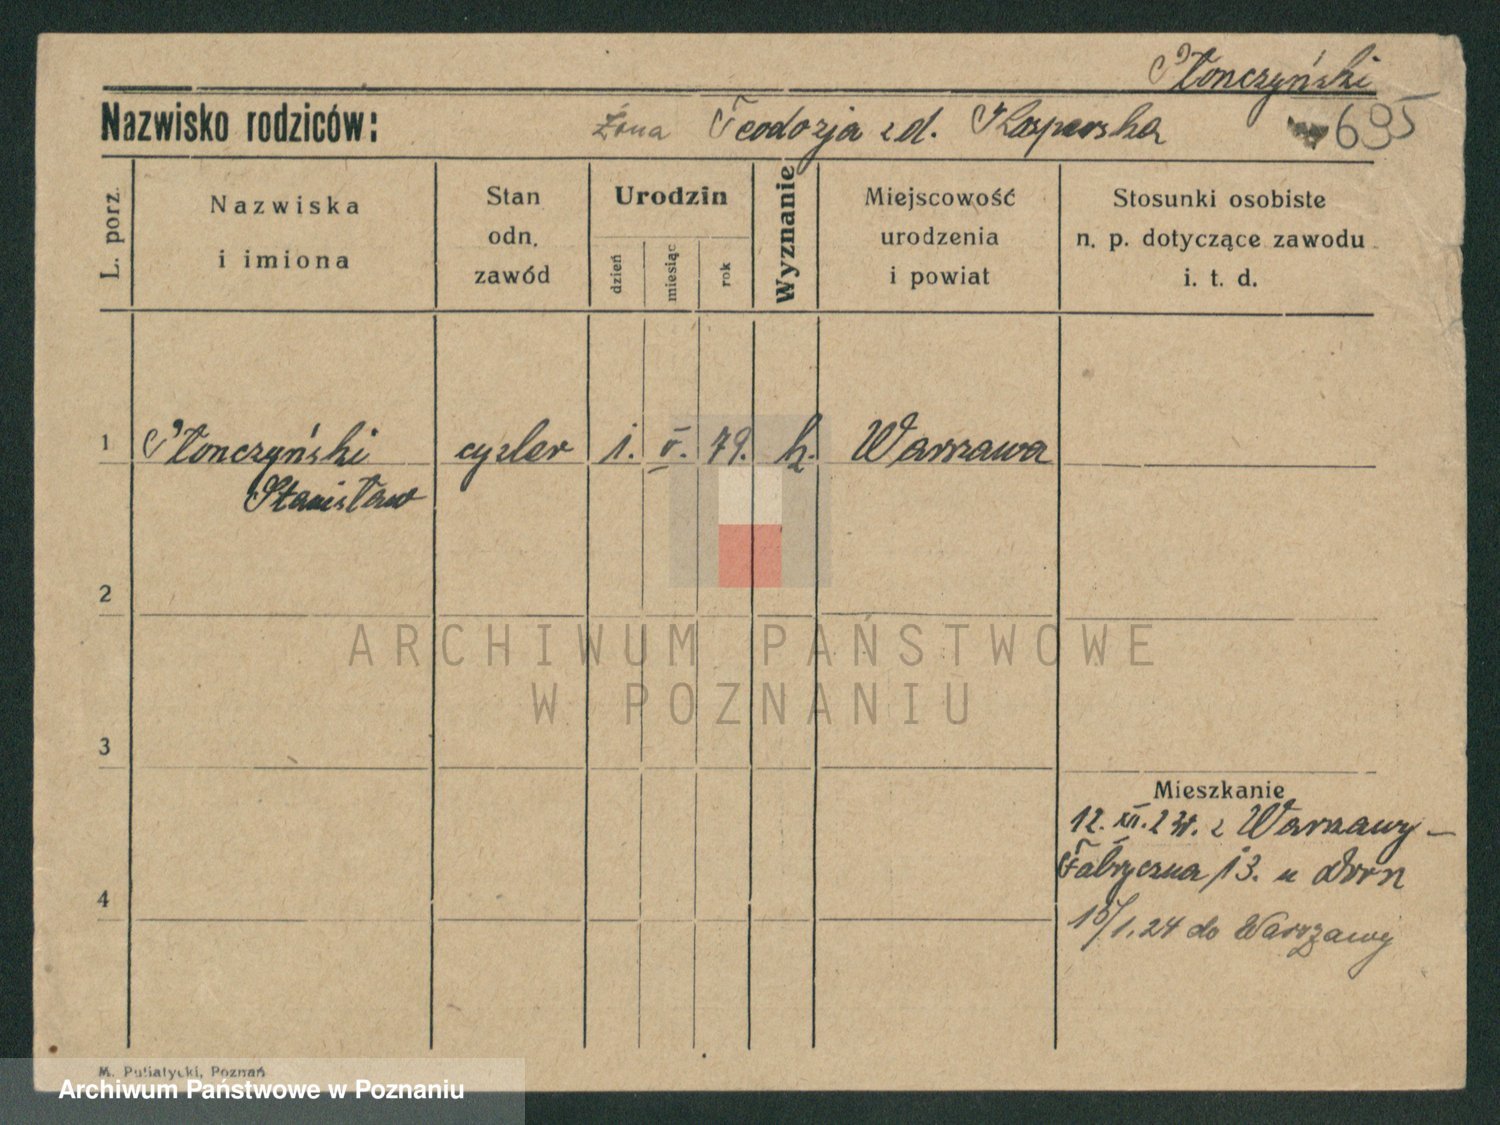 Słonczyński
Nazwisko rodziców: Żona Teodozja z d. Kasperska 695
L. porz.
Nazwiska
i imiona
Stan
odn.
zawód
Urodzin
dzień
miesiąc
rok
Wyznanie
Miejscowość
urodzenia
i powiat
Stosunki osobiste
n. p. dotyczące zawodu
i. t. d.
1 Słonczyński cyzler 1. V. 79. k. Warszawa
Stanisław
2
ARCHIWUM PAŃSTWOWE
W POZNANIU
3
Mieszkanie
12. XII. 23r. z Warszawy –
Fabryczna 13. u
4
15/1.24 do Warszawy
M. Putiatycki, Poznań
Archiwum Państwowe w Poznaniu